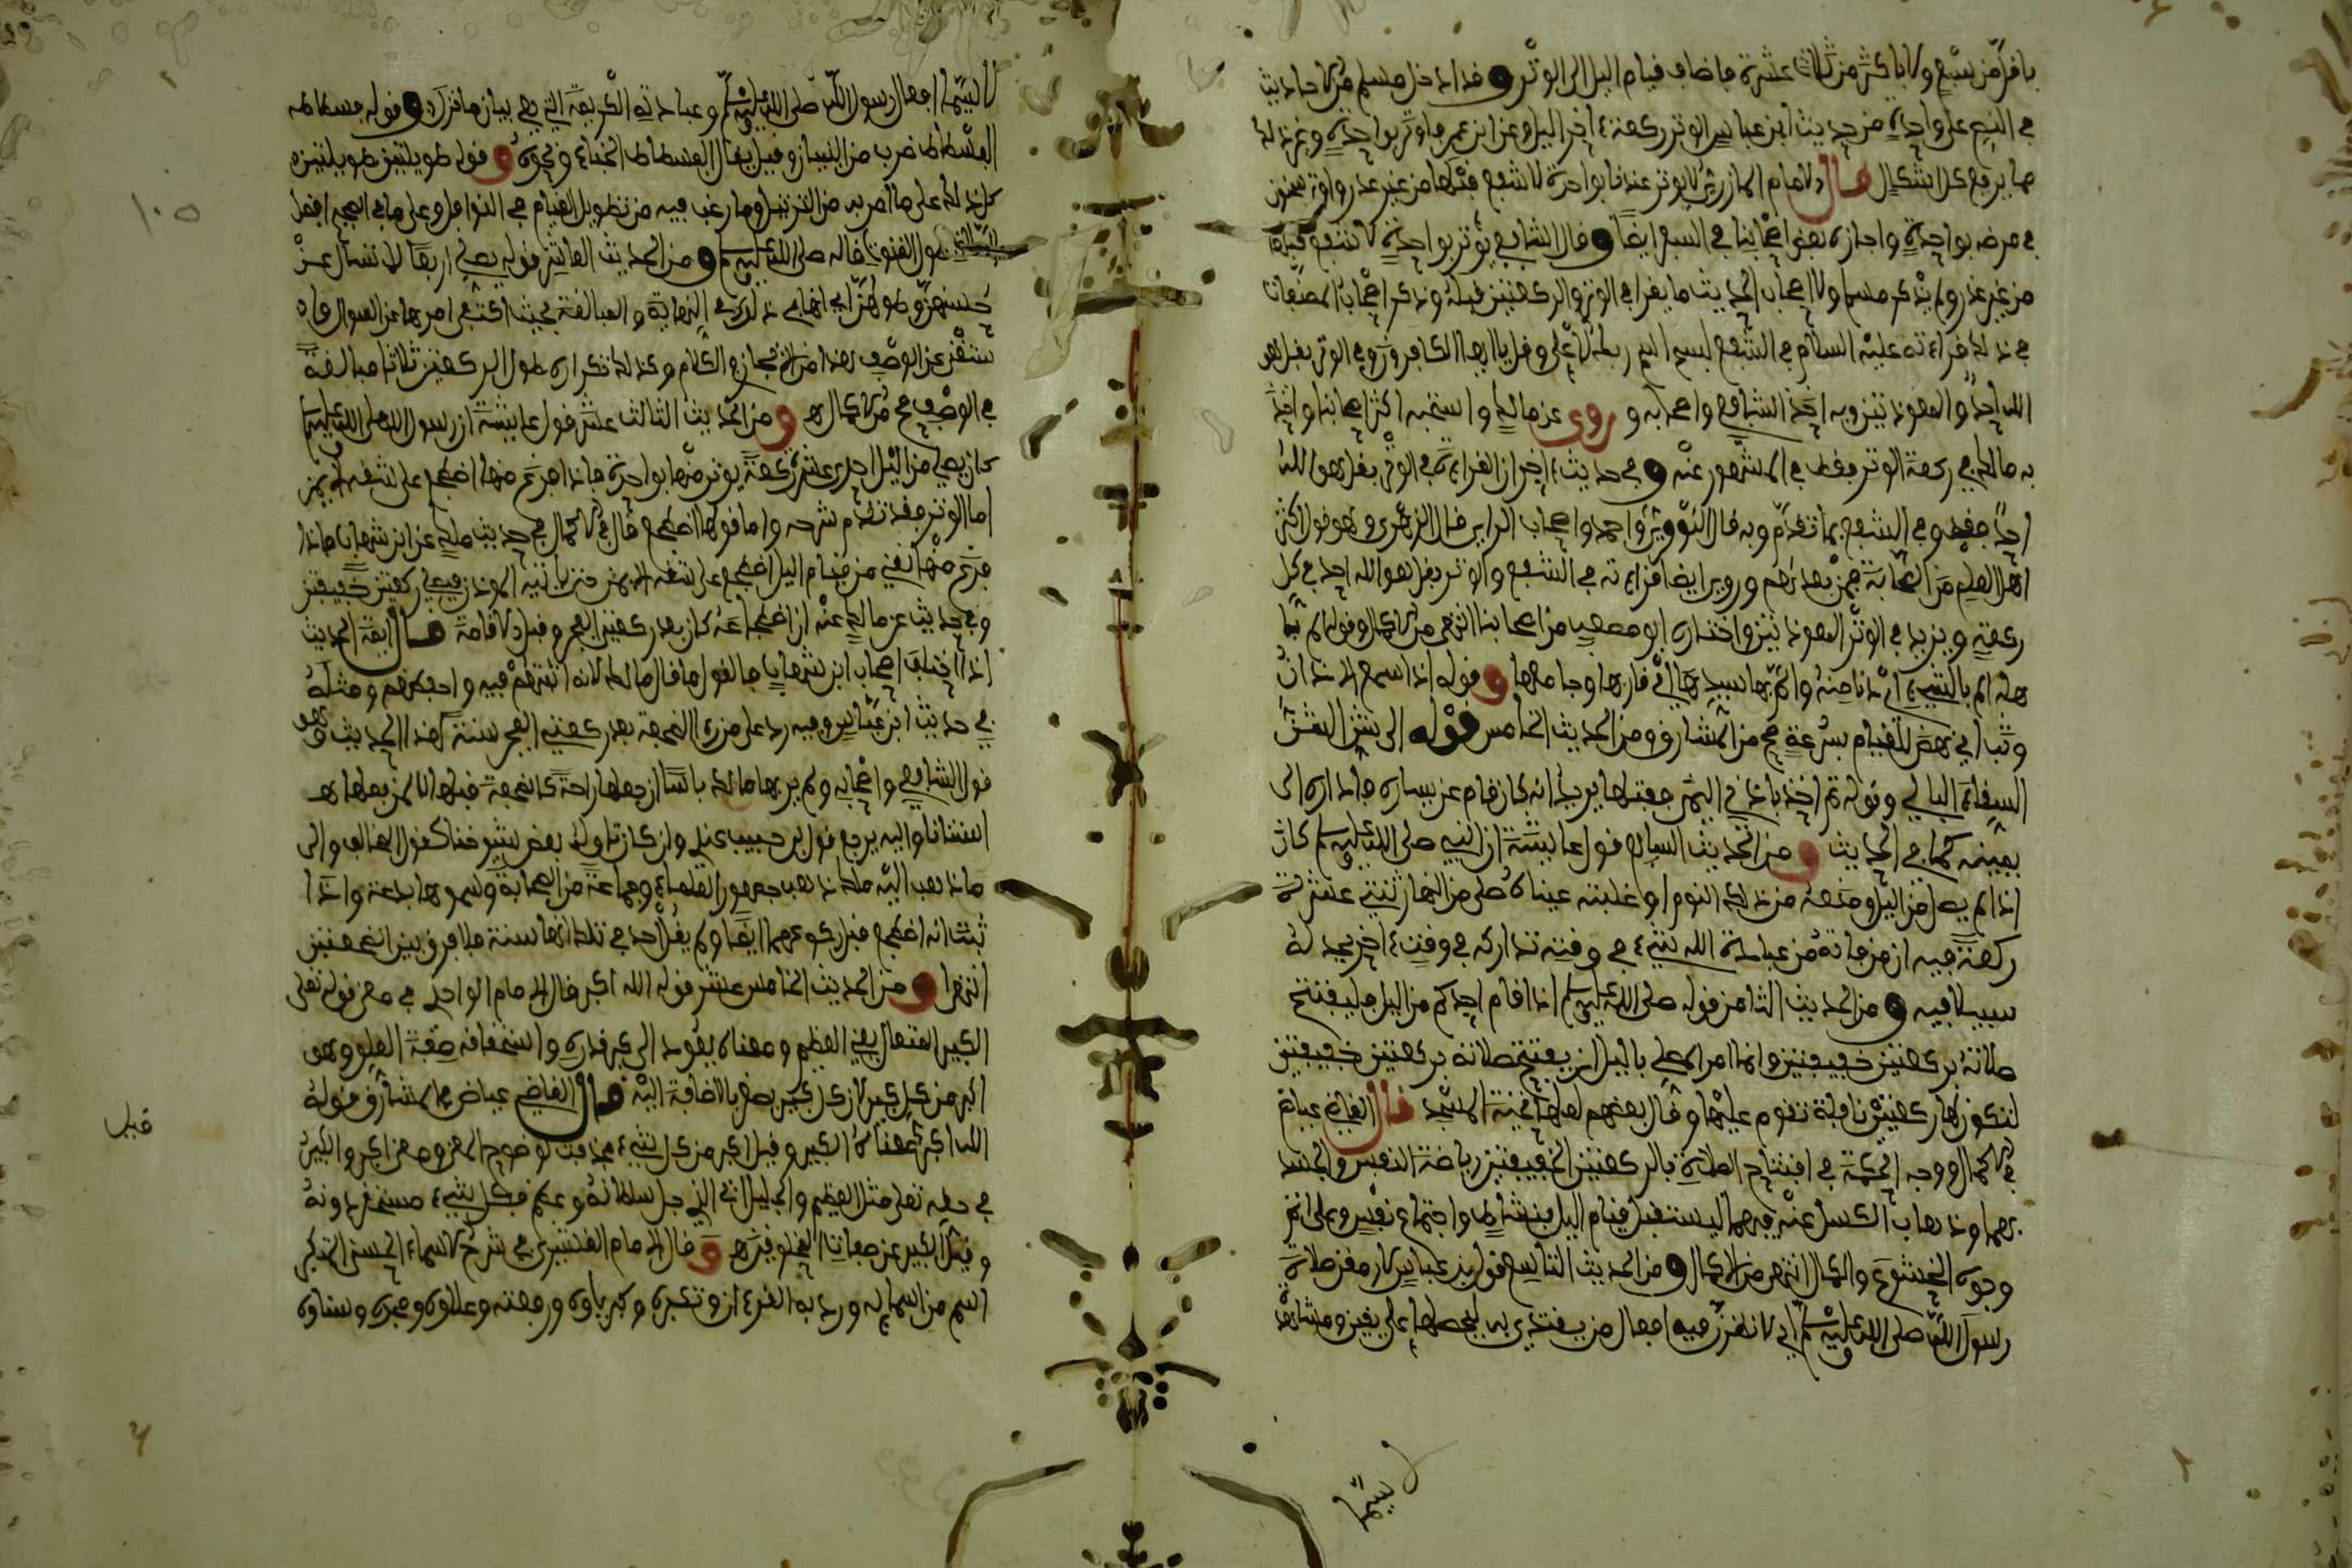 باقل من سبع ولا باكثر من ثلاث عشرة فاضاف قيام اليل الى الوتر وقد ادخل مسلم من الاحاديث
في النص على واحدة من حديث ابن عباس الوتر ركعة من اخر اليل وعن ابن عمر فاوتر بواحدة وغير ذلك
ما يرفع كل اشكال قال الامام المازري الوتر عندنا واحدة لا شفع قبلها من غير عذر واوتر سحنون
في مرضه بواحدة واجازه بعض اصحابنا في السفر ايضا وقال الشافعي يوتر بواحدة لا شفع قبلها
من غير عذر ولم يذكر مسلم ولا اصحاب الحديث ما يقرا في الوتر والركعتين قبله وذكر اصحاب المصنفات
في ذلك قراءته عليه السلام في الشفع بسبح اسم ربك الاعلى وقل يا ايها الكافرون وفي الوتر بقل هو
الله احد والمعوذتين وبه اخذ الشافعي واصحابه وروى عن مالك واستحبه اكثر اصحابنا واخذ
به مالك في ركعة الوتر فقط في المشهور عنه وفي حديث اخر ان القراءة في الوتر بقل هو الله
احد فقط وفي الشفع بما تقدم وبه قال الثوري واحمد واصحاب الراي قال الزهري وهو قول اكثر
اهل العلم من الصحابة فمن بعدهم وروي ايضا قراءته في الشفع والوتر بقل هو الله احد في كل
ركعة ويزيد في الوتر المعوذتين واختاره ابو مصعب من اصحابنا انتهى من الاكمال وقوله ثم
هله الم بالشيء اي دنا منه والم بها سيدها اي قاربها وجامعها وقوله اذا سمع الاذان
وثب اي نهض للقيام بسرعة صح من المشارق ومن الحديث الخامس قوله الى شن الشن
السقاء البالي وقوله ثم اخذ باذني اليمنى ففتلها يريد انه كان قام عن يساره فاداره الى
يمينه كما في الحديث ومن الحديث السابع قول عايشة ان النبي صلى الله عليه وسلم كان
اذا لم يصل من اليل ومنعه من ذلك النوم او غلبته عيناه صلى من النهار ثنتي عشرة
ركعة فيه ان من فاته من عبادة الله شيء في وقته تداركه في وقت اخر يجد له
سبيلا فيه ومن الحديث الثامن قوله صلى الله عليه وسلم اذا قام احدكم من اليل فليفتتح
صلاته بركعتين خفيفتين وانما امر المصلي باليل ان يفتتح صلاته بركعتين خفيفتين
لتكون لها ركعتين نافلة تقوم عليها وقال بعضهم لعلها تحية المسجد قال القاضي عياض
في الاكمال ووجه الحكمة في افتتاح الصلاة بالركعتين الخفيفتين رياضة النفس والجسد
بهما وذهاب الكسل عنه فيهما ليستقبل قيام اليل بنشاط واجتماع نفس وعلى اتم
وجوه الخشوع والكمال انتهى من الاكمال ومن الحديث التاسع قول ابن عباس لارمقن صلاة
رسول الله صلى الله عليه وسلم اي لانظرن فيه افعال من يقتدي به ليحصلها على يقين ومشاهدة
لا سيما
لا سيما افعال رسول الله صلى الله عليه وسلم وعباداته الكريمة التي هي بيان ما نزل وقوله فسطاطه
الفسطاط ضرب من البنيان وقيل يقال الفسطاط الخباء ونحوه وقوله طويلتين طويلتين
كل ذلك على ما امر به من الترتيل وما رغب فيه من تطويل القيام في النوافل وعلى ما في الصحيح افضل
الصلاة طول القنوت قاله صلى الله عليه وسلم ومن الحديث العاشر قوله يصلي اربعا لا تسال عن
حسنهن وطولهن اي انها في ذلك في النهاية والمبالغة بحيث اكتفي امرها عن السوال واه
ستغنى عن الوصف لهذا من الايجاز في الكلام وكذلك تكراره طول الركعتين ثلاثا مبالغة
في الوصف صح من الاكمال اهـ ومن الحديث الثالث عشر قول عايشة ان رسول الله صلى الله عليه وسلم
كان يصلي من اليل احدى عشرة ركعة يوتر منها بواحدة فاذا فرغ منها اضطجع على شقه الايمن
اما الوتر فقد تقدم شرحه واما قولها اضطجع قال في الاكمال في حديث مالك عن ابن شهاب فاذا
فرغ منها يعني من قيام اليل اضطجع على شقه الايمن حتى ياتيه الموذن فيصلي ركعتين خفيفتين
وفي حديث عن مالك عنه ان اضطجاعه كان بعد ركعتي الفجر وقبل الاقامة قال ايمة الحديث
اذا اختلف اصحاب ابن شهاب فالقول ما قال مالك لانه اثبتهم فيه واحفظهم ومثله
في حديث ابن عباس وفيه رد على من راى الضجعة بعد ركعتي الفجر سنة لهذا الحديث وهو
قول الشافعي واصحابه ولم ير بها مالك باسا ان جعلها راحة كالضجعة قبلها لا لمن يفعلها
استنانا واليه يرجع قول ابن حبيب عندي وان كان تاوله بعض شيوخنا كقول المخالف والى
ما ذهب اليه مالك ذهب جمهور العلماء وجماعة من الصحابة وسموها بدعة واذا
ثبت انه اضطجع قبل ركوعهما ايضا ولم يقل احد في تلك انها سنة فلا فرق بين الضجعتين
انتهى ومن الحديث الخامس عشر قوله الله اكبر قال الامام الواحدي في معنى قوله تعلى
الكبير المتعال يعني العظيم ومعناه يعود الى كبر قدره واستحقاقه صفة العلو وهو
اكبر من كل كبير لان كل كبير يصغر بالاضافة اليه قال القاضي عياض في المشارق قوله
الله اكبر معناه الكبير وقيل اكبر من كل شيء فحذفت لوضوح المعنى ومعنى اكبر والكبير
في حقه تعلى مثل العظيم والجليل اي الذي جل سلطانه وعظم فكل شيء مستحقر دونه
وقيل الكبير عن صفات المخلوقين اهـ وقال الامام القشيري في شرح الاسماء الحسنى المتكبر
اسم من اسمايه ورد به القرءان وتكبره وكبرياوه ورفعته وعلاوه ومجده وسناوه
قيل